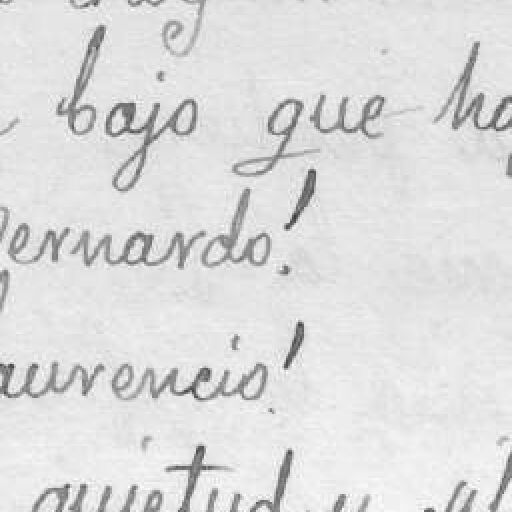 bajo que ha
Bernardo!
Laurencio!
quietud y al